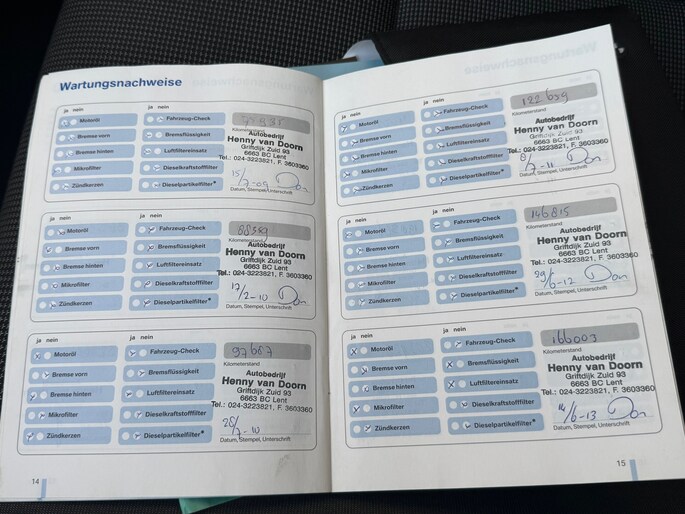 Wartungsnachweise
ja nein
ja nein
Motoröl
Fahrzeug-Check
Bremse vorn
Bremsflüssigkeit
Bremse hinten
Luftfiltereinsatz
Mikrofilter
Dieselkraftstofffilter
Zündkerzen
Dieselpartikelfilter*
Kilometerstand
Autobedrijf
Henny van Doorn
Griftdijk Zuid 93
6663 BC Lent
Tel.: 024-3223821, F. 3603360
15/7-09
Datum, Stempel, Unterschrift
ja nein
ja nein
Motoröl
Fahrzeug-Check
Bremse vorn
Bremsflüssigkeit
Bremse hinten
Luftfiltereinsatz
Mikrofilter
Dieselkraftstofffilter
Zündkerzen
Dieselpartikelfilter*
88389
Kilometerstand
Autobedrijf
Henny van Doorn
Griftdijk Zuid 93
6663 BC Lent
Tel.: 024-3223821, F. 3603360
17/2-10
Datum, Stempel, Unterschrift
ja nein
ja nein
Motoröl
Fahrzeug-Check
Bremse vorn
Bremsflüssigkeit
Bremse hinten
Luftfiltereinsatz
Mikrofilter
Dieselkraftstofffilter
Zündkerzen
Dieselpartikelfilter*
97667
Kilometerstand
Autobedrijf
Henny van Doorn
Griftdijk Zuid 93
6663 BC Lent
Tel.: 024-3223821, F. 3603360
28/7-10
Datum, Stempel, Unterschrift
14
ja nein
ja nein
Motoröl
Fahrzeug-Check
Bremse vorn
Bremsflüssigkeit
Bremse hinten
Luftfiltereinsatz
Mikrofilter
Dieselkraftstofffilter
Zündkerzen
Dieselpartikelfilter*
122659
Kilometerstand
Autobedrijf
Henny van Doorn
Griftdijk Zuid 93
6663 BC Lent
Tel.: 024-3223821, F. 3603360
8/7-11
Datum, Stempel, Unterschrift
ja nein
ja nein
Motoröl
Fahrzeug-Check
Bremse vorn
Bremsflüssigkeit
Bremse hinten
Luftfiltereinsatz
Mikrofilter
Dieselkraftstofffilter
Zündkerzen
Dieselpartikelfilter*
146815
Kilometerstand
Autobedrijf
Henny van Doorn
Griftdijk Zuid 93
6663 BC Lent
Tel.: 024-3223821, F. 3603360
29/6-12
Datum, Stempel, Unterschrift
ja nein
ja nein
Motoröl
Fahrzeug-Check
Bremse vorn
Bremsflüssigkeit
Bremse hinten
Luftfiltereinsatz
Mikrofilter
Dieselkraftstofffilter
Zündkerzen
Dieselpartikelfilter*
166003
Kilometerstand
Autobedrijf
Henny van Doorn
Griftdijk Zuid 93
6663 BC Lent
Tel.: 024-3223821, F. 3603360
14/6-13
Datum, Stempel, Unterschrift
15